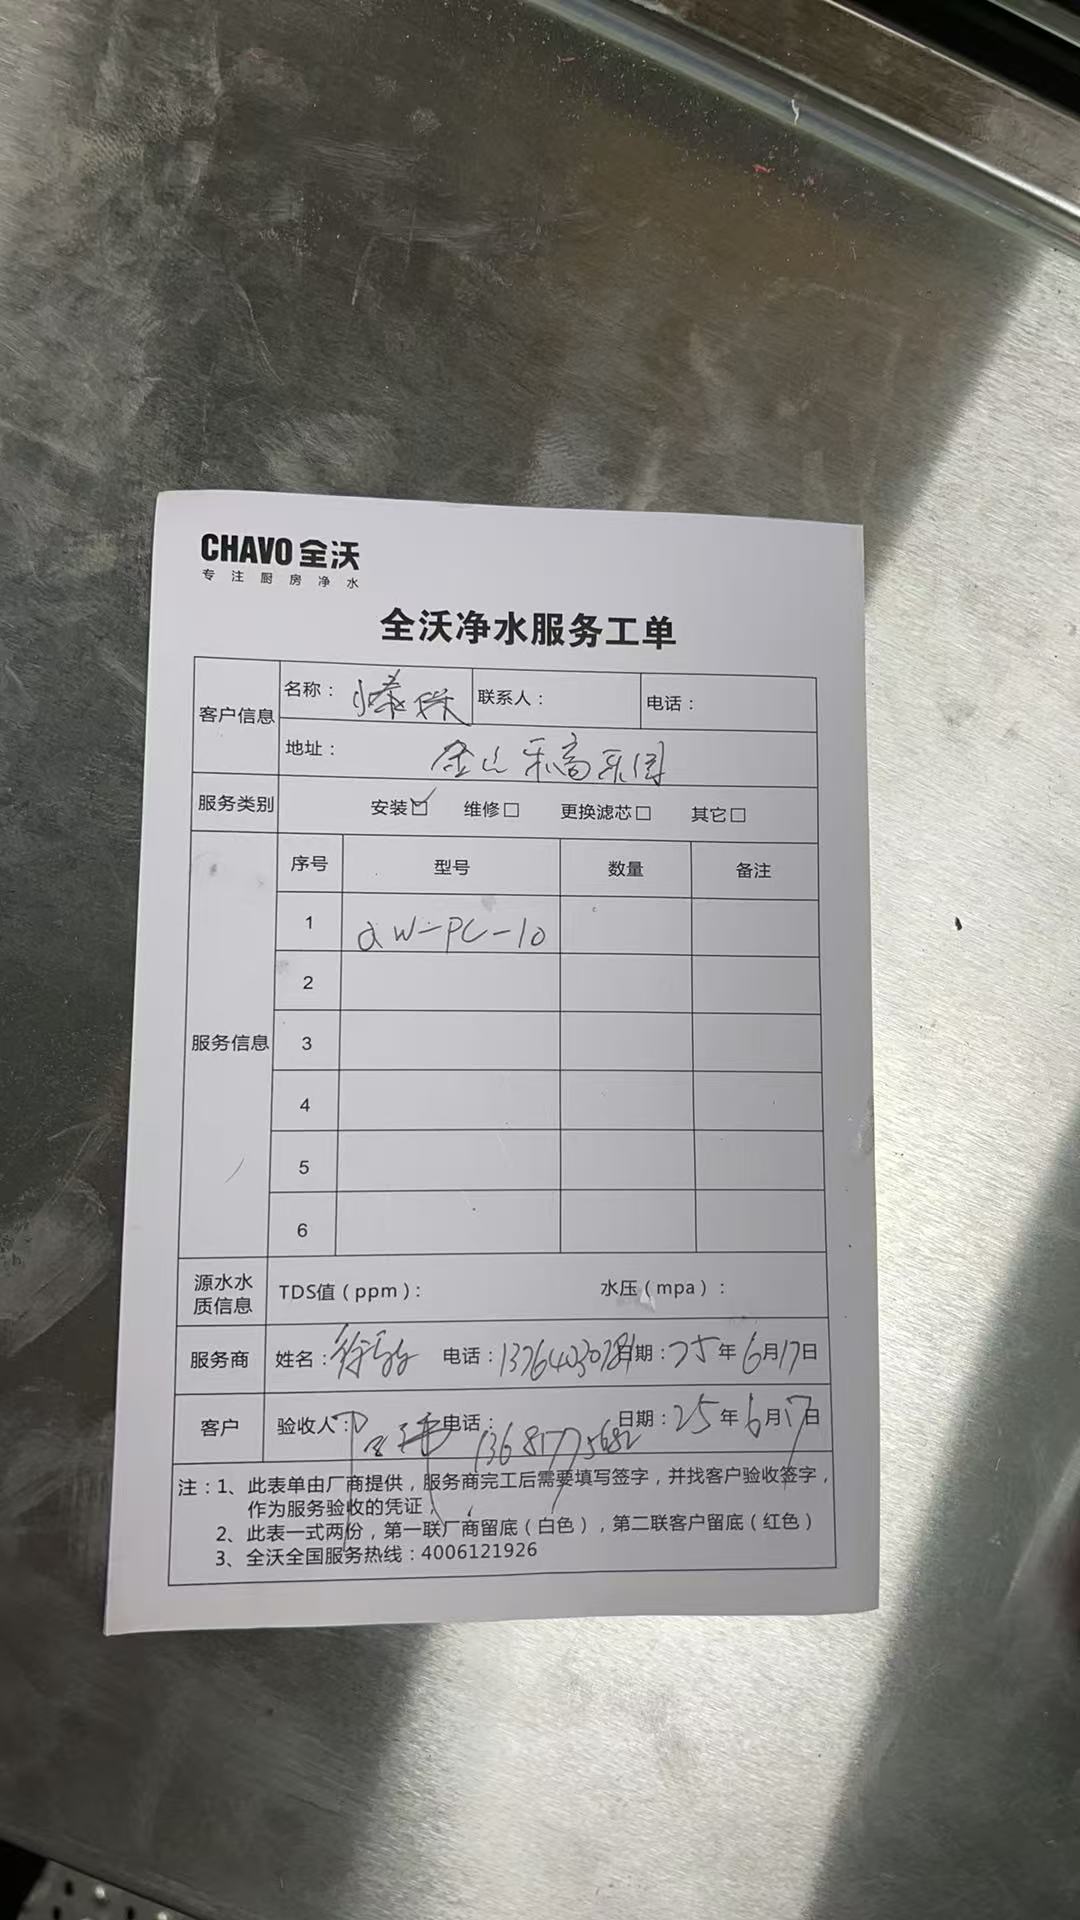 CHAVO 全沃
专注厨房净水
全沃净水服务工单
客户信息 名称： 联系人： 电话：
地址： 金山乐高乐园
服务类别 安装☑ 维修□ 更换滤芯□ 其它□
服务信息 序号 型号 数量 备注
1 QW-PC-10
2
3
4
5
6
源水水质信息 TDS值（ppm）： 水压（mpa）：
服务商 姓名： 电话： 日期：25年6月17日
客户 验收人： 电话：13681775682 日期：25年6月17日
注：1、此表单由厂商提供，服务商完工后需要填写签字，并找客户验收签字，
作为服务验收的凭证；
2、此表一式两份，第一联厂商留底（白色），第二联客户留底（红色）
3、全沃全国服务热线：4006121926